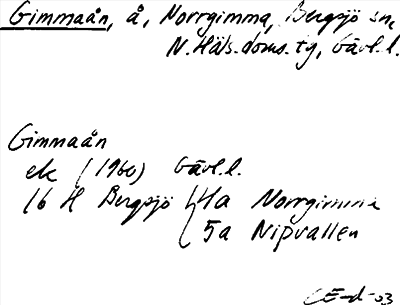 Gimmaån, å, Norrgimma, Bergsjö sn,
N. Häls. doms. tg, Gävl. l.
Gimmaån
ek (1960) Gävl. l.
16 H Bergsjö 4a Norrgimma
5a Nipvallen
CE-d-03